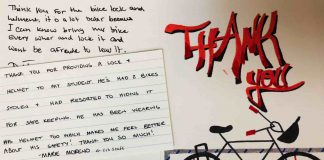 Thank you for the bike lock and
helment, it a lot better because
I can know bring my bike
Every wher and lock it and
wont be afraide to lose it.
THANK YOU FOR PROVIDING A LOCK &
HELMET TO MY STUDENT. HE'S HAD 2 BIKES
STOLEN & HAD RESORTED TO HIDING IT
FOR SAFE KEEPING. HE HAS BEEN WEARING
HIS HELMET TOO WHICH MAKES ME FEEL BETTER
ABOUT HIS SAFETY! THANK YOU SO MUCH!
- MARIE MORENO
THANK
you